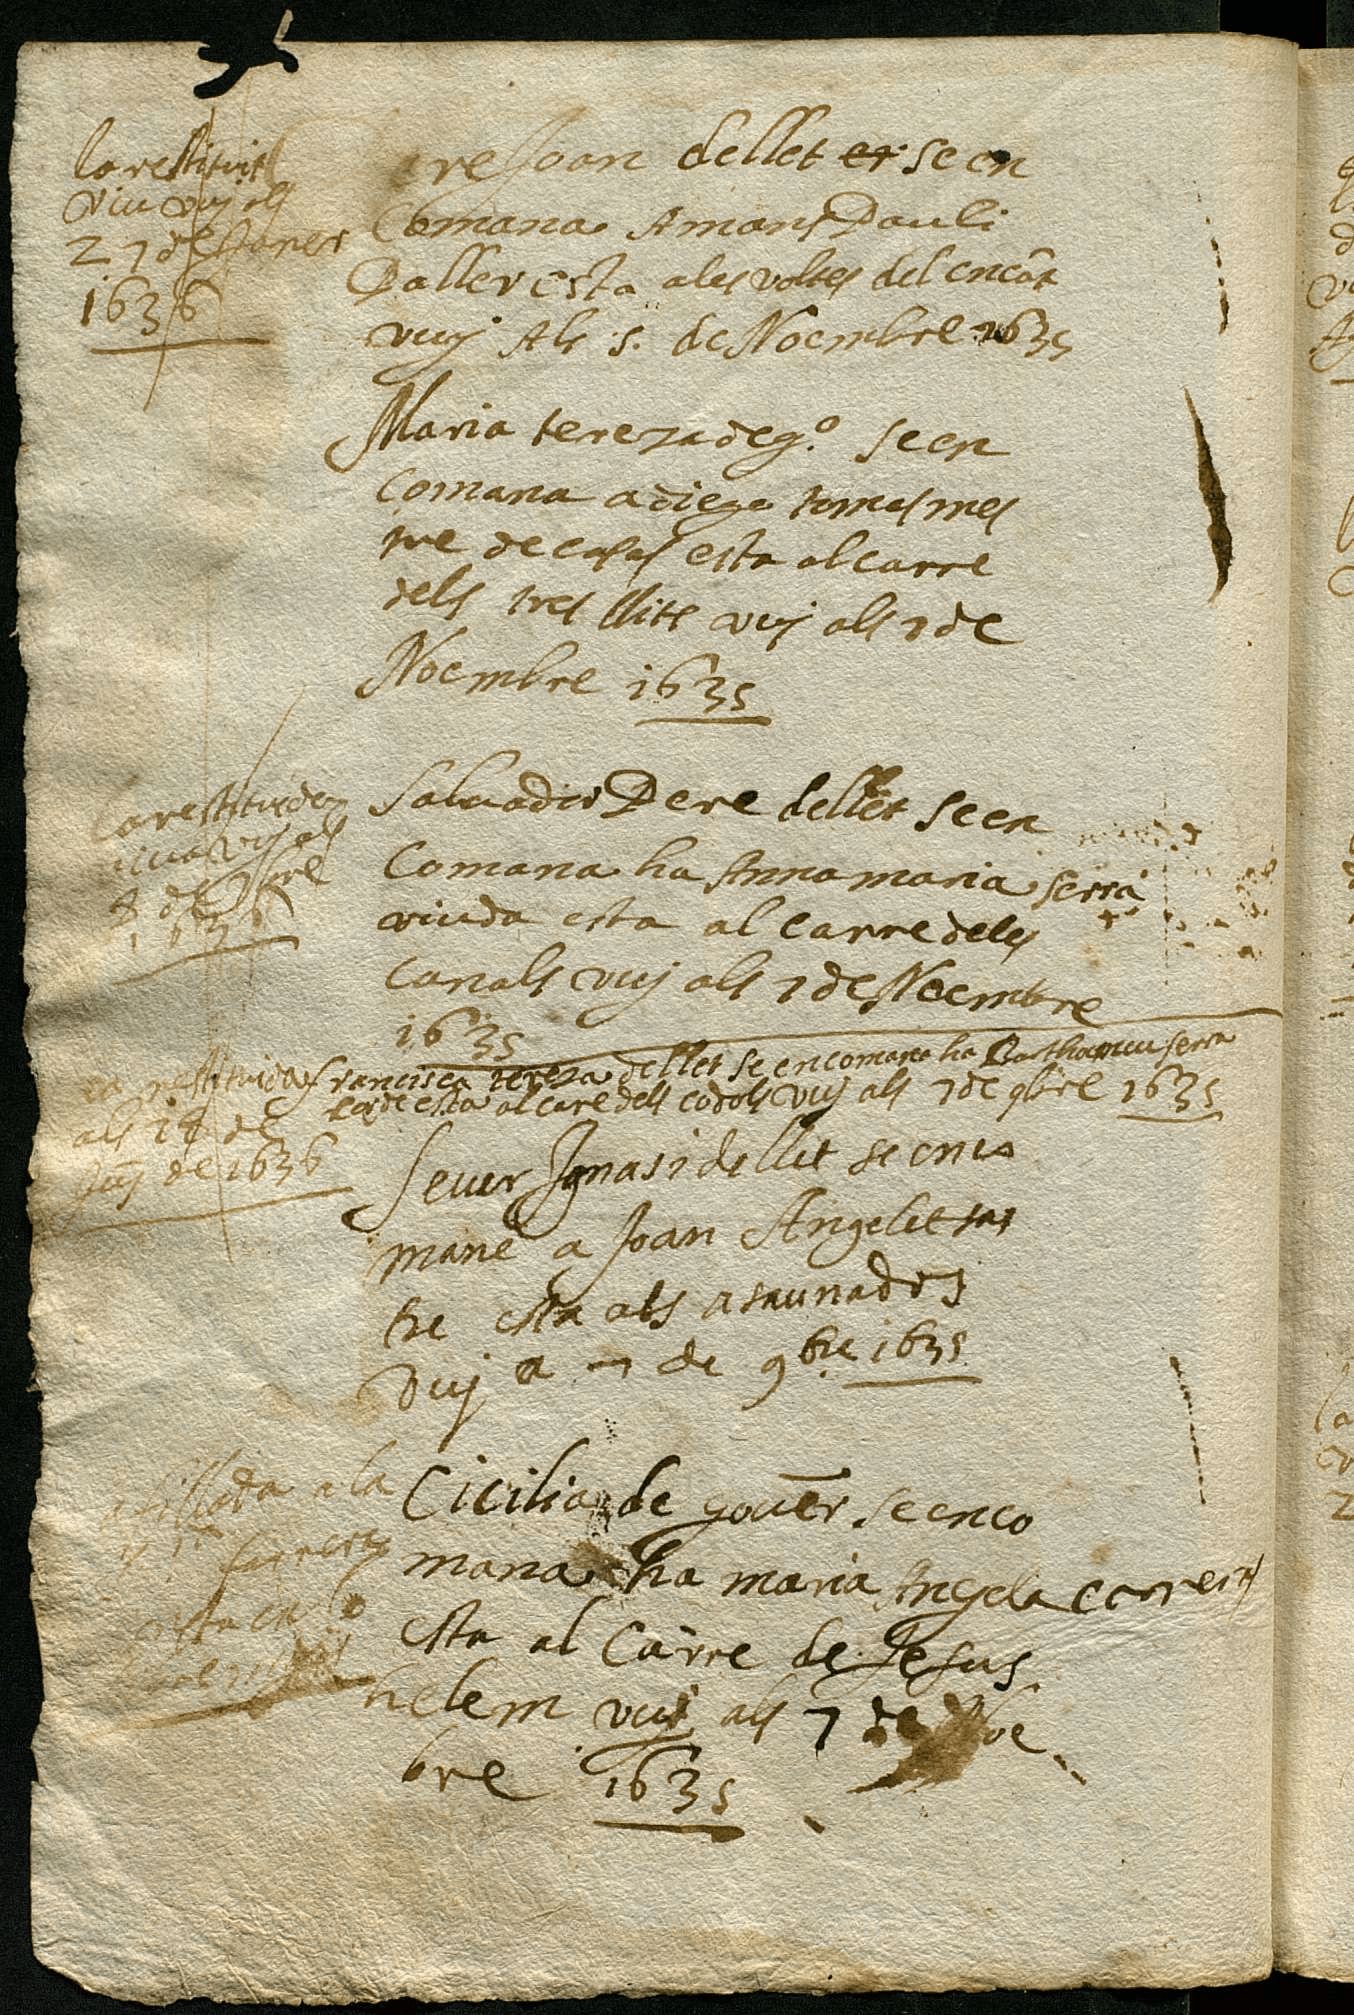 la restituit
viu vuj als
27 de Janer
1636
re Joan dellet se en
Comana A mans Pauli
Daller esta a les voltes del encât
vuj Als 5. de Noembre 1635
Maria tereza de g.º se en
Comana a diego tomas mes
tre de casas esta al carre
dels tres llits vuj als 7 de
Noembre 1635
la restituida
viua vuj als
8 de
Saluador Pere dellet se en
Comana ha Anna maria serra
viuda esta al carre deles
canals vuj als 7 de Noembre
1635
la restituida
als 19 de
Juÿ de 1636
Francisca tereza dellet se encomana ha Barthomeu serra
esta al care dels codols vuj als 7 de 9bre 1635
Seuer Jgnasi dellet se enco
mane a Joan Angelet sas
tre esta als assaunadors
vuj a 7 de 9bre 1635
afillada a la
Cicilia de gouer. se enco
mana ha maria Angela carreras
esta al Carre de Jesus
helem vuj als 7 de Noe
bre 1635